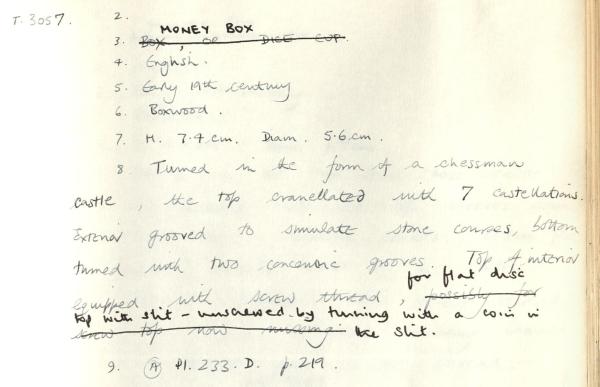 T. 3057.
2.
MONEY BOX
3. BOX, OR DICE CUP.
4. English.
5. Early 19th century
6. Boxwood.
7. H. 7.4 cm. Diam. 5.6 cm.
8. Turned in the form of a chessman
castle, the top crenellated with 7 castellations.
Exterior grooved to simulate stone courses, bottom
turned with two concentric grooves. Top of interior
for flat disc
equipped with screw thread, possibly for
top with slit - unscrewed by turning with a coin in
screw top now missing. the slit.
9. (A) Pl. 233. D. p. 219.